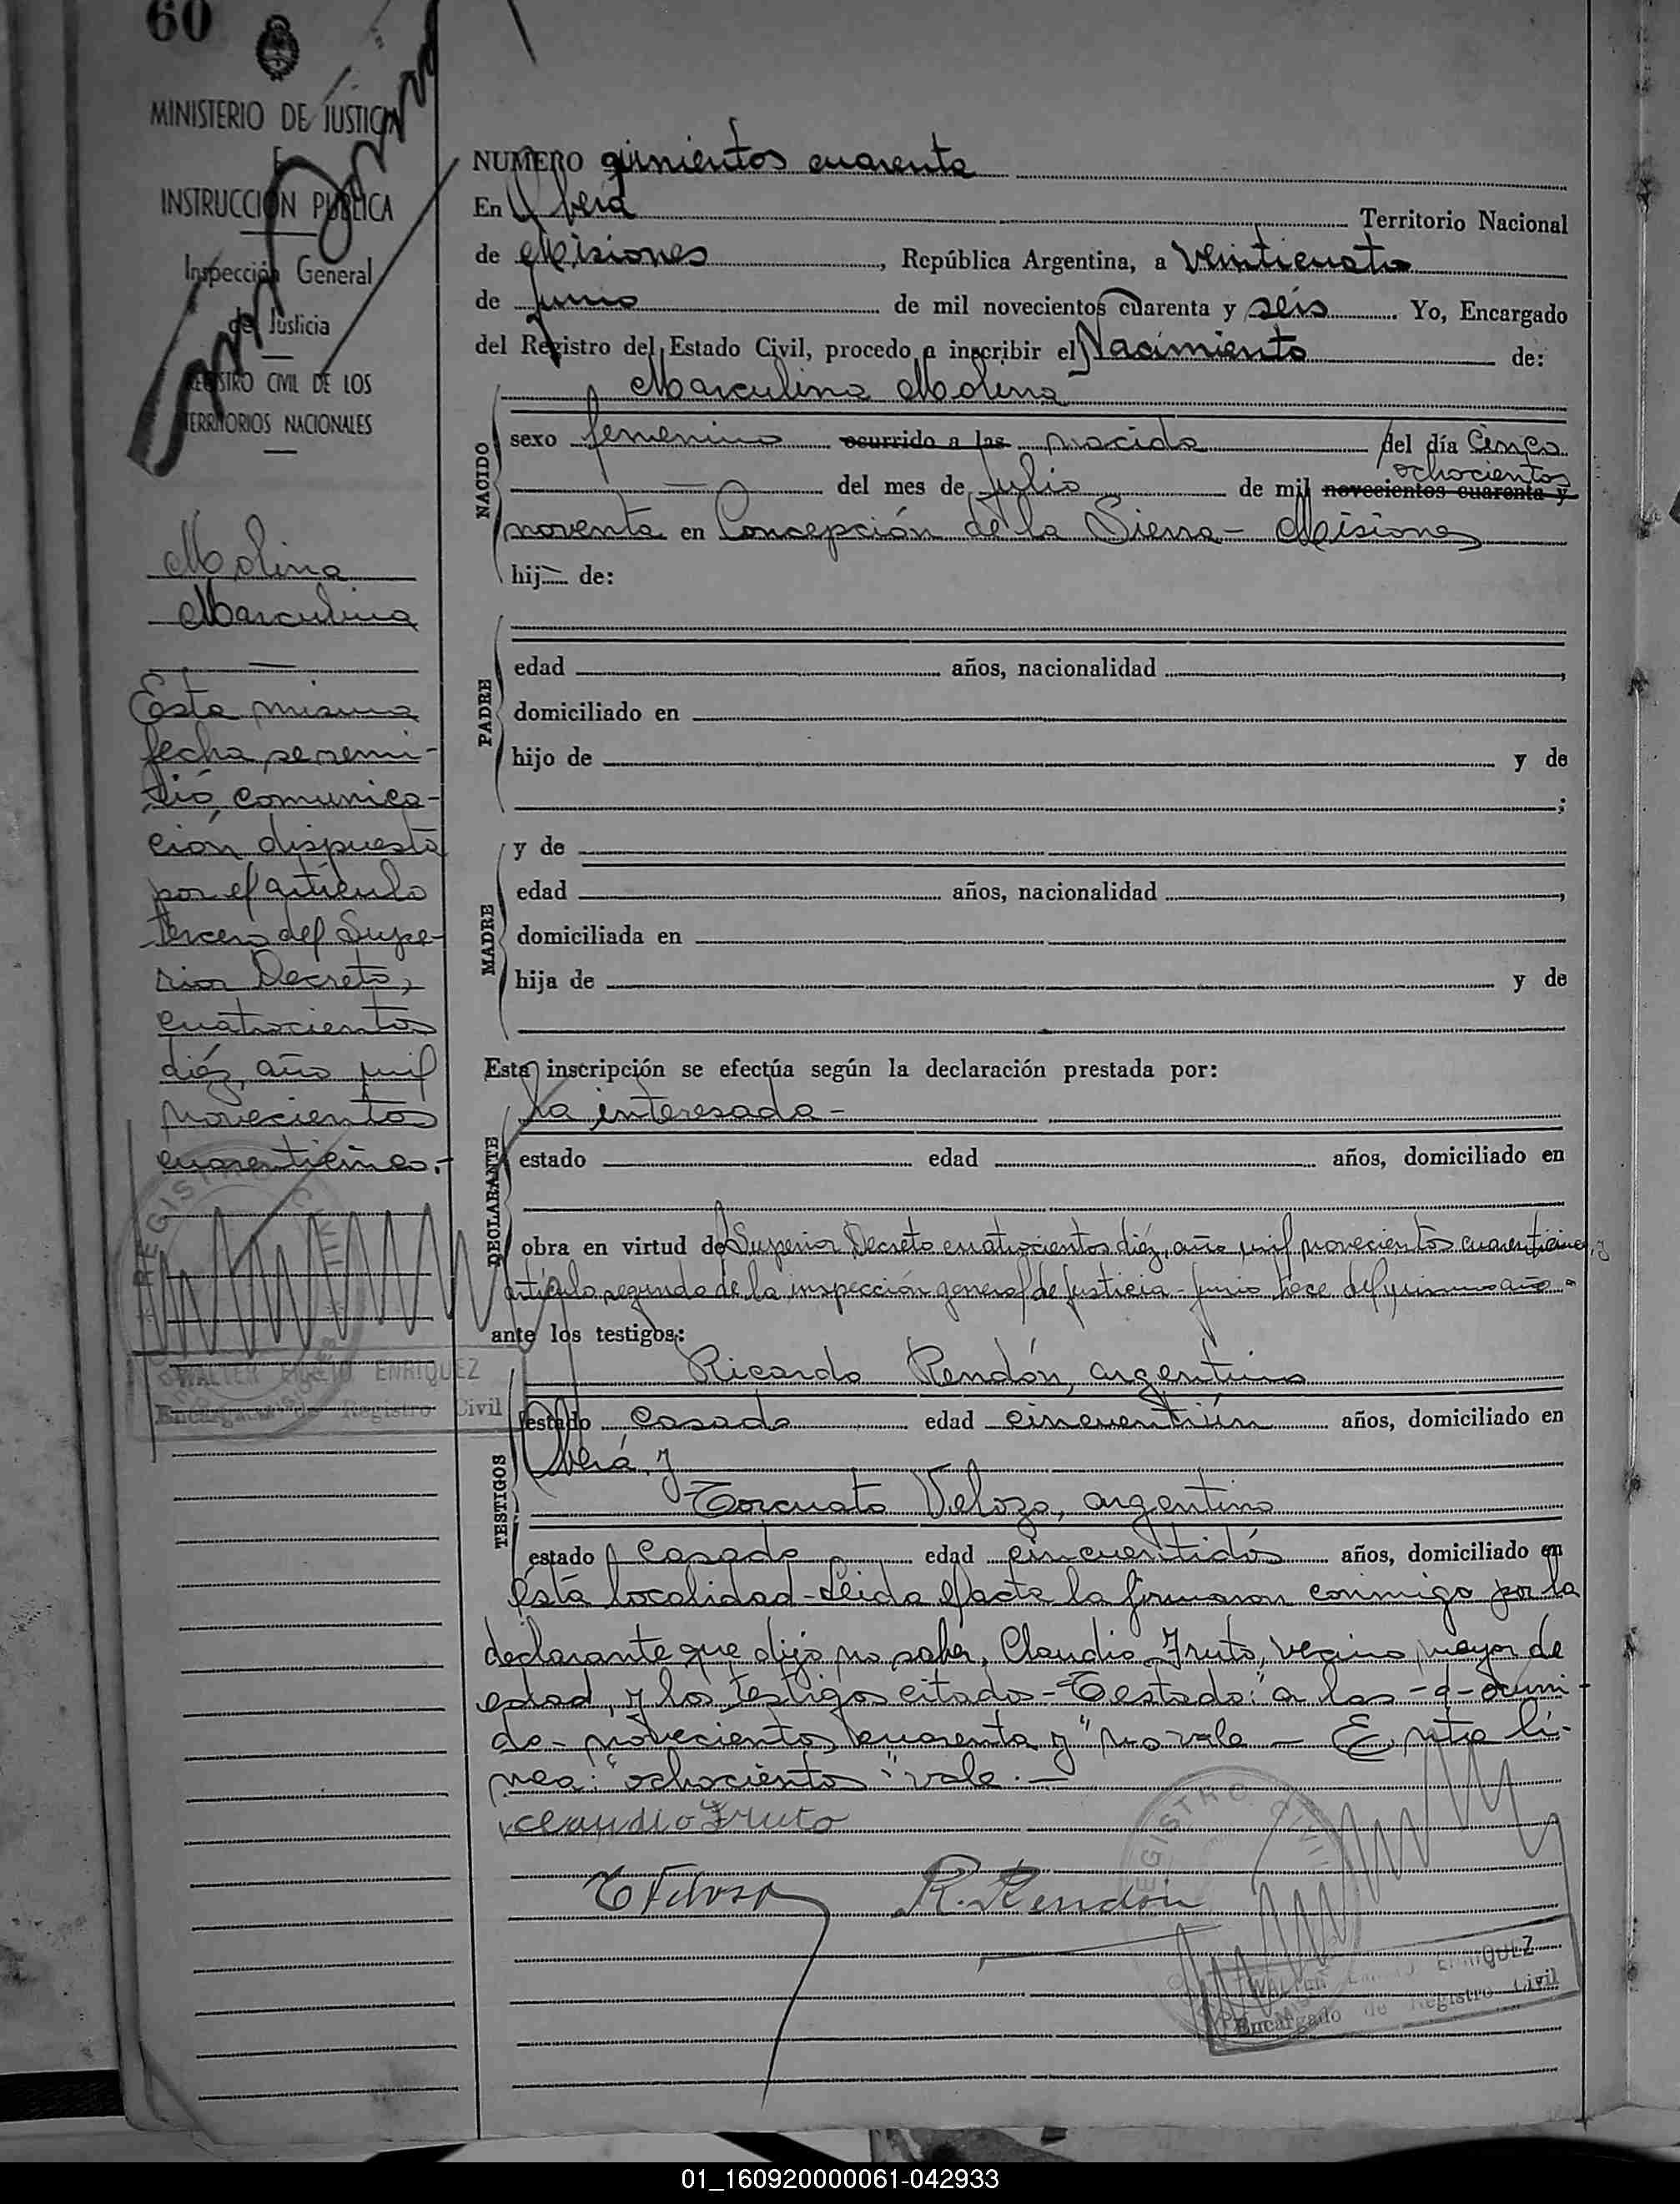 60
MINISTERIO DE JUSTICIA
E
INSTRUCCIÓN PUBLICA
Inspección General
de Justicia
REGISTRO CIVIL DE LOS
TERRITORIOS NACIONALES
Molina
Marculina
Esta misma
fecha se remi-
tió comunica-
ción dispuesta
por el artículo
tercero del Supe-
rior Decreto,
cuatrocientos
diéz, año mil
novecientos
cuarenticinco.-
REGISTRO CIVIL
WALTER EMILIO ENRIQUEZ
Encargado de Registro Civil
NUMERO quinientos cuarenta
En Oberá Territorio Nacional
de Misiones, República Argentina, a veinticuatro
de junio de mil novecientos cuarenta y seis. Yo, Encargado
del Registro del Estado Civil, procedo a inscribir el Nacimiento de:
Marculina Molina
NACIDO
sexo femenino ocurrido a las nacida del día cinco
ochocientos
del mes de julio de mil novecientos cuarenta y
noventa en Concepción de la Sierra - Misiones
hij— de:
PADRE
edad años, nacionalidad ,
domiciliado en
hijo de y de
;
MADRE
y de
edad años, nacionalidad ,
domiciliada en
hija de y de
Esta inscripción se efectúa según la declaración prestada por:
DECLARANTE
la interesada-
estado edad años, domiciliado en
obra en virtud del Superior Decreto cuatrocientos diéz, año mil novecientos cuarenticinco, y
artículo segundo de la inspección general de justicia - junio trece del mismo año-
ante los testigos:
TESTIGOS
Ricardo Rendón, argentino
estado casado edad cincuentiún años, domiciliado en
Oberá, y
Torcuato Velozo, argentino
estado casado edad cincuentidós años, domiciliado en
ésta localidad - Leida el acta la firmaron conmigo por la
declarante que dijo no saber, Claudio Fruto, vecino mayor de
edad, y los testigos citados - Testado: "a las - d - ocurri-
do - novecientos cuarenta y" no vale - Entre lí-
nea: "ochocientos" vale.-
Claudio Fruto
R. Rendón
REGISTRO CIVIL
WALTER EMILIO ENRIQUEZ
Encargado de Registro Civil
01_160920000061-042933